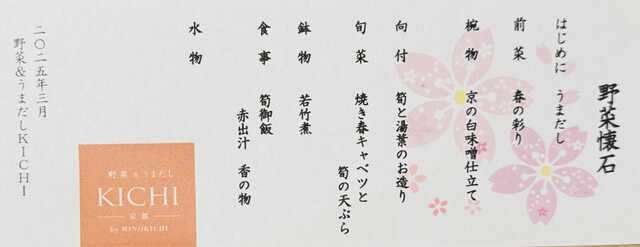 野菜懐石
はじめに　うまだし
前菜　春の彩り
椀物　京の白味噌仕立て
向付　筍と湯葉のお造り
旬菜　焼き春キャベツと
筍の天ぷら
鉢物　若竹煮
食事　筍御飯
赤出汁　香の物
水物
二〇二五年三月
野菜&うまだしKICHI
野菜&うまだし
KICHI
京都
by MINOKICHI